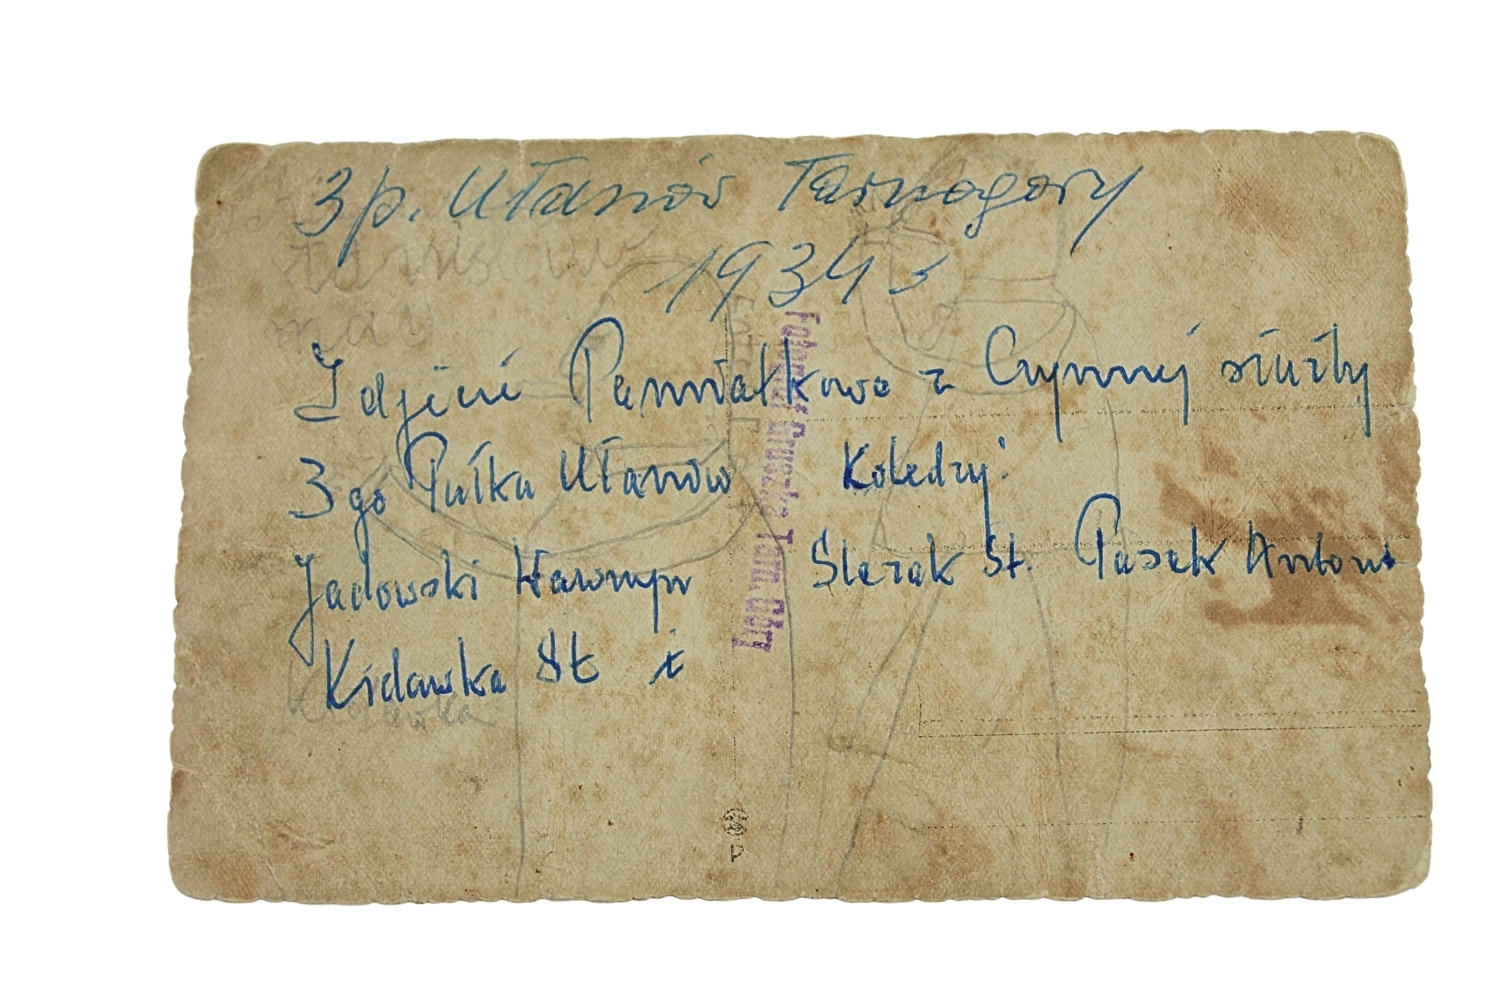 3 p. Ułanów Tarnogóry
1934 r
Zdjęcie Pamiatkowe z Czynnej służby
3go Pułku Ułanów Koledzy:
Jadowski Wawrzyn Ślęzak St. Pasek Antoni
Kidawka St i
Fotograf Gruszka Tarn. Góry
P